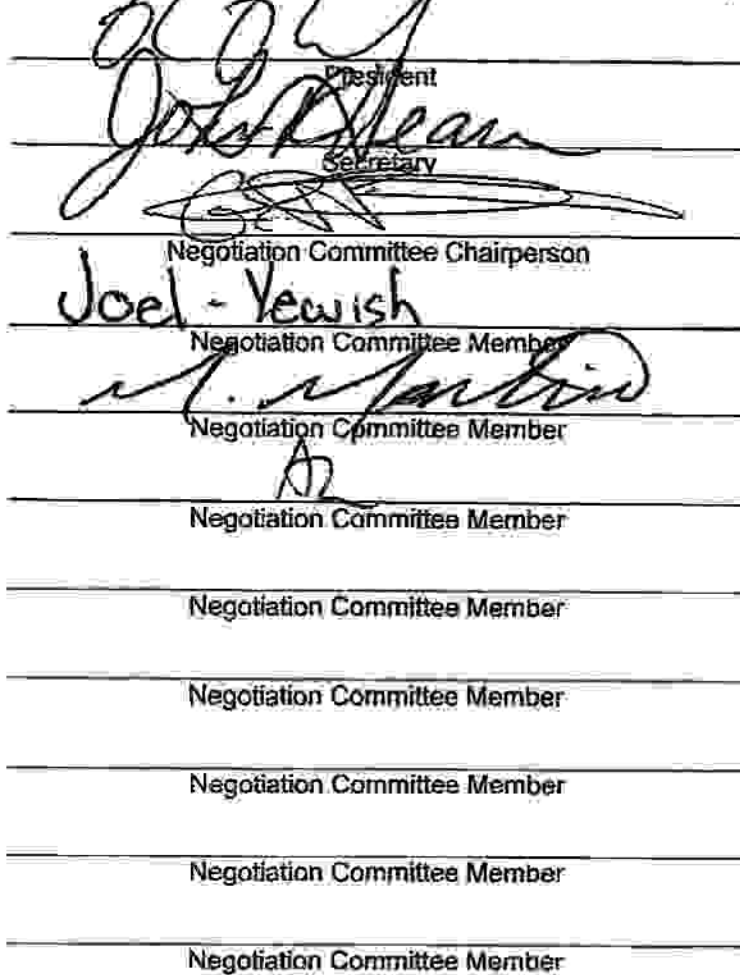 President
John D Hearn
Secretary
Negotiation Committee Chairperson
Joel - Yewish
Negotiation Committee Member
M. Martino
Negotiation Committee Member
Negotiation Committee Member
Negotiation Committee Member
Negotiation Committee Member
Negotiation Committee Member
Negotiation Committee Member
Negotiation Committee Member